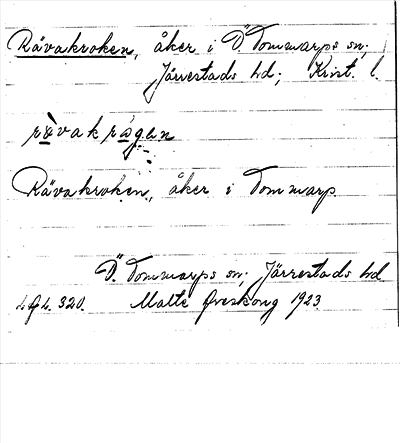 Rävakroken, åker i Ö. Tommarps sn;
Järrestads hd; Krist. l.
rävakrågen
Rävakroken, åker i Tommarp.
Ö. Tommarps sn; Järrestads hd
320. Malte 1923